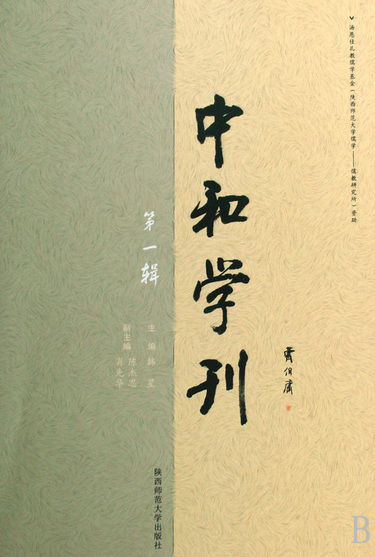 汤恩佳孔教儒学基金（陕西师范大学儒学——儒教研究所）资助
中和学刊
贾伯庸
第一辑
主编 韩星
副主编 陈杰思
肖先华
陕西师范大学出版社
B